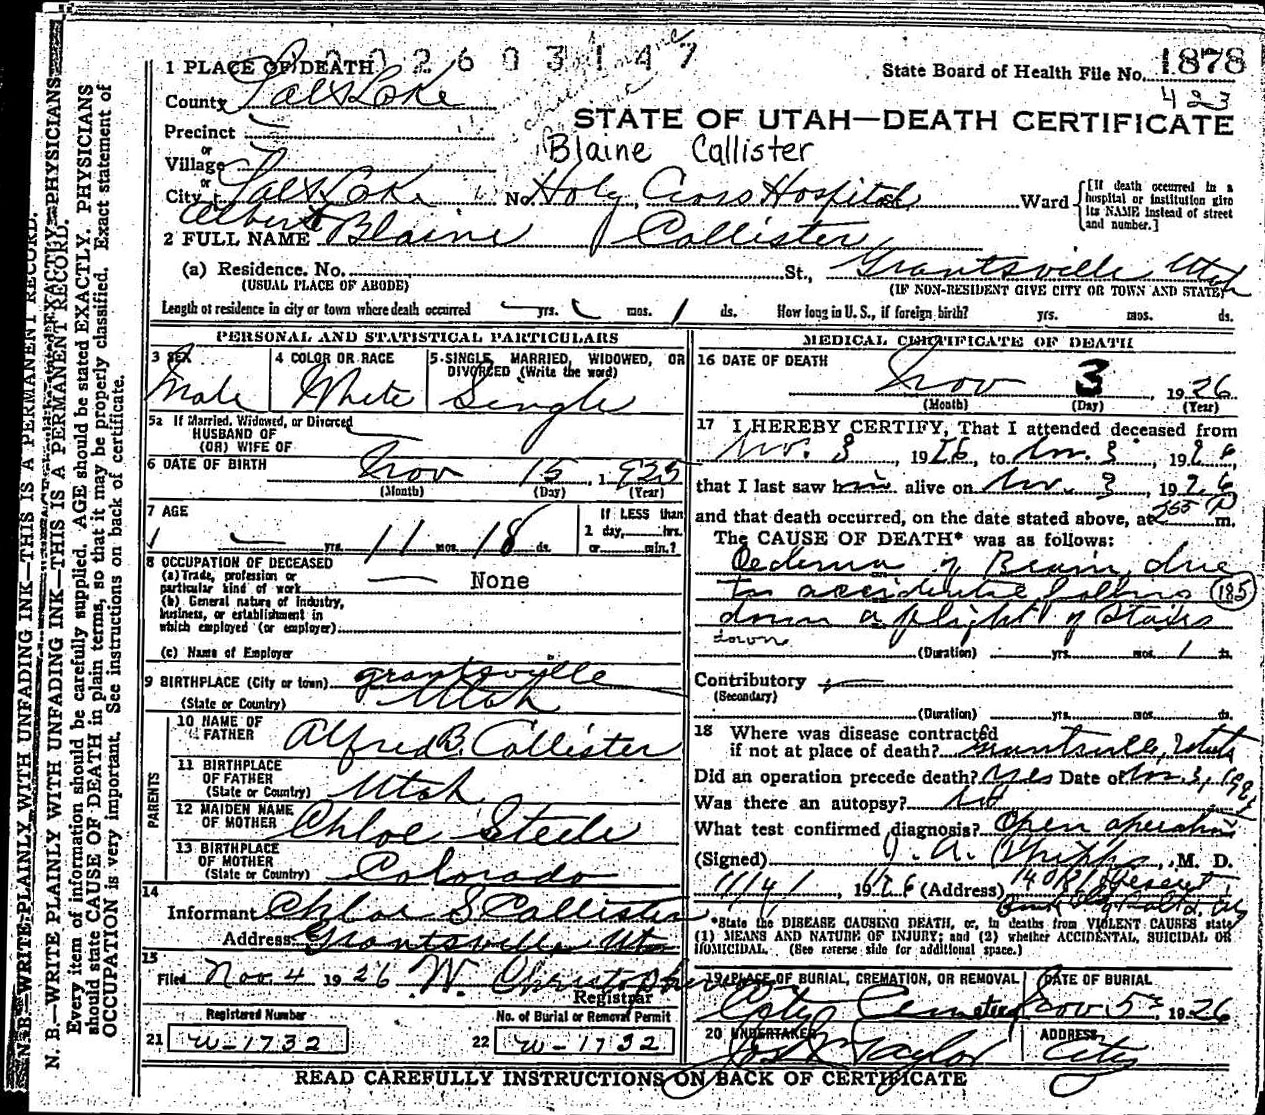 002603147
1 PLACE OF DEATH
State Board of Health File No. 1878
County Salt Lake
423
STATE OF UTAH—DEATH CERTIFICATE
Precinct
or
Village
Blaine Callister
or
City Salt Lake No. Holy Cross Hospital Ward
[If death occurred in a hospital or institution give its NAME instead of street and number.]
Albert
2 FULL NAME Blaine Callister
(a) Residence. No. St., Grantsville Utah
(USUAL PLACE OF ABODE) (IF NON-RESIDENT GIVE CITY OR TOWN AND STATE)
Length of residence in city or town where death occurred yrs. mos. 1 ds. How long in U. S., if foreign birth? yrs. mos. ds.
PERSONAL AND STATISTICAL PARTICULARS
3 SEX
Male
4 COLOR OR RACE
White
5 SINGLE, MARRIED, WIDOWED, OR DIVORCED (Write the word)
Single
5a If Married, Widowed, or Divorced
HUSBAND OF
(OR) WIFE OF
6 DATE OF BIRTH Nov 15, 1925
(Month) (Day) (Year)
7 AGE
yrs. 11 mos. 18 ds.
If LESS than
1 day, hrs.
or min.?
8 OCCUPATION OF DECEASED
(a) Trade, profession or
particular kind of work None
(b) General nature of industry,
business, or establishment in
which employed (or employer)
(c) Name of Employer
9 BIRTHPLACE (City or town) Grantsville
(State or Country) Utah
PARENTS
10 NAME OF
FATHER Alfred B. Callister
11 BIRTHPLACE
OF FATHER
(State or Country) Utah
12 MAIDEN NAME
OF MOTHER Chloe Steele
13 BIRTHPLACE
OF MOTHER
(State or Country) Colorado
14
Informant Chloe S Callister
Address: Grantsville Utah
15
Filed Nov. 4 1926 W. Christopherson
Registrar
Registered Number
21 W-1732
No. of Burial or Removal Permit
22 W-1732
MEDICAL CERTIFICATE OF DEATH
16 DATE OF DEATH
Nov 3, 1926
(Month) (Day) (Year)
17 I HEREBY CERTIFY, That I attended deceased from
Nov. 3, 1926, to Nov. 3, 1926,
that I last saw him alive on Nov. 3, 1926
and that death occurred, on the date stated above, at 255 P m.
The CAUSE OF DEATH* was as follows:
Oedema of Brain, due
to accidental falling 185
down a flight of stairs
down
(Duration) yrs. mos. 1 ds.
Contributory
(Secondary)
(Duration) yrs. mos. ds.
18 Where was disease contracted
if not at place of death? Grantsville, Utah
Did an operation precede death? Yes Date of Nov. 3, 192
Was there an autopsy? No
What test confirmed diagnosis? Open operation
(Signed) J. A. Phipps, M. D.
11/4/, 1926 (Address) 1408 Deseret
Bank Bldg
*State the DISEASE CAUSING DEATH, or, in deaths from VIOLENT CAUSES state
(1) MEANS AND NATURE OF INJURY; and (2) whether ACCIDENTAL, SUICIDAL OR
HOMICIDAL. (See reverse side for additional space.)
19 PLACE OF BURIAL, CREMATION, OR REMOVAL
City Cemetery
DATE OF BURIAL
Nov 5, 1926
20 UNDERTAKER
Jos Taylor
ADDRESS
City
READ CAREFULLY INSTRUCTIONS ON BACK OF CERTIFICATE
N. B.—WRITE PLAINLY WITH UNFADING INK—THIS IS A PERMANENT RECORD.
N. B.—WRITE PLAINLY WITH UNFADING INK—THIS IS A PERMANENT RECORD.
Every item of information should be carefully supplied. AGE should be stated EXACTLY. PHYSICIANS
should state CAUSE OF DEATH in plain terms, so that it may be properly classified. Exact statement of
OCCUPATION is very important. See instructions on back of certificate.